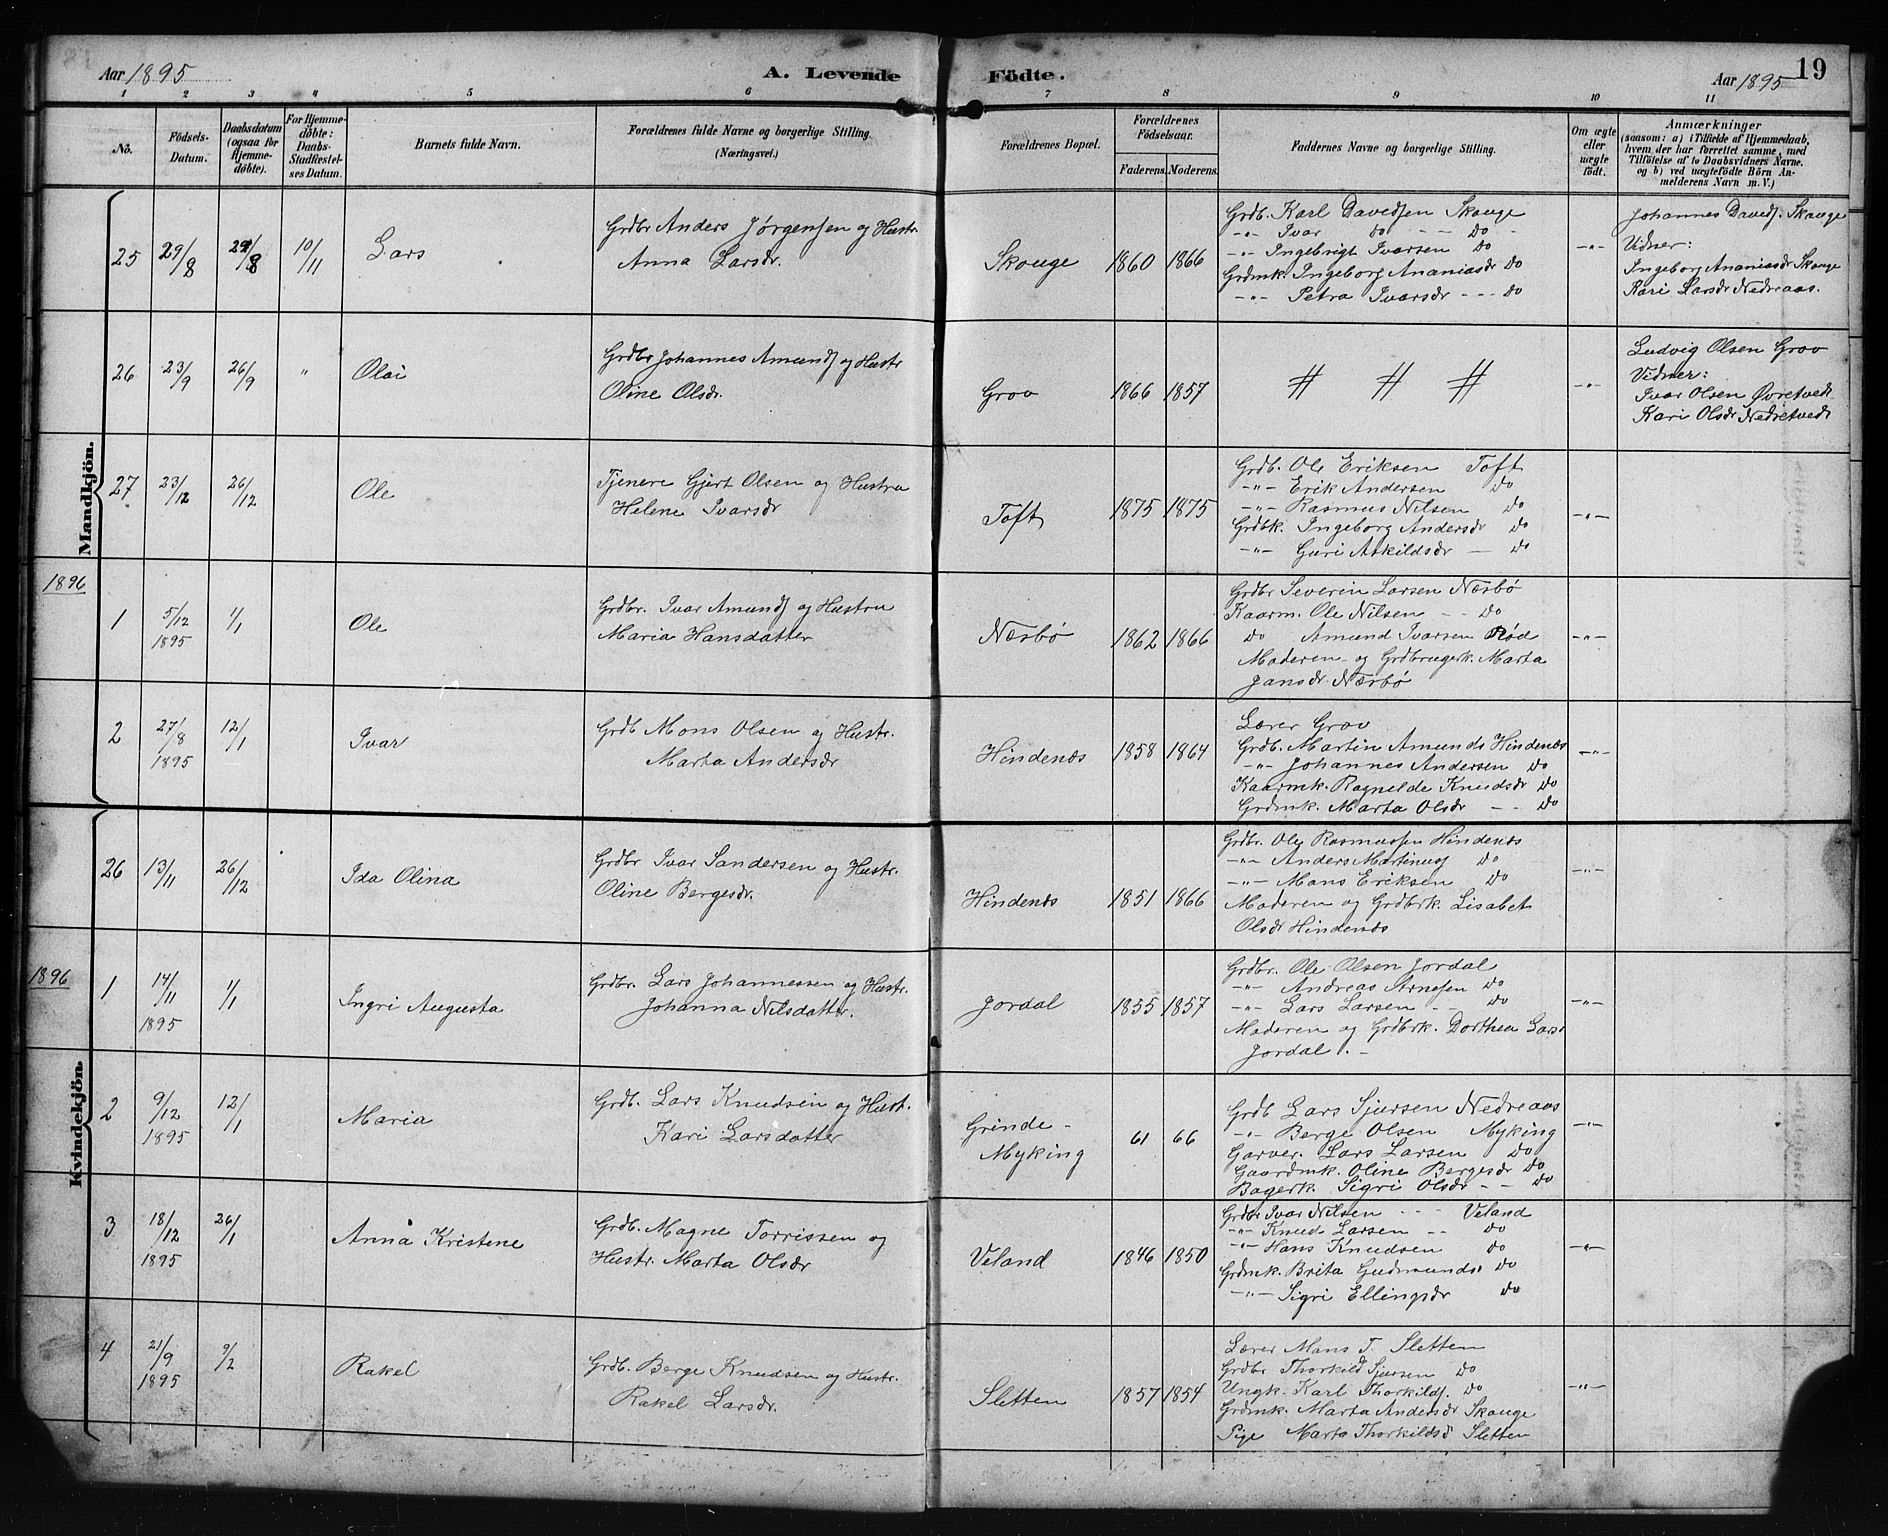 Aar 1895
A. Levende Födte.
Aar 1895
19
1 2 3 4 5 6 7 8 9 10 11
No.
Födsels-Datum.
Daabsdatum (ogsaa for Hjemmedöbte).
For Hjemmedöbte: Daabs-Stadfæstelses Datum.
Barnets fulde Navn.
Forældrenes fulde Navne og borgerlige Stilling. (Næringsvei.)
Forældrenes Bopæl.
Forældrenes Födselsaar.
Faderens. Moderens.
Faddernes Navne og borgerlige Stilling.
Om ægte eller uægte födt.
Anmærkninger
(saasom: a) i Tilfælde af Hjemmedaab, hvem der har forrettet samme, med Tilföielse af to Daabsvidners Navne, og b) ved uægtefödte Börn Anmelderens Navn m. V.)
Mandkjön.
25 29/8 29/8 10/11 Lars
Grdbr Anders Jørgensen og Hustr.
Anna Larsdr.
Skouge 1860 1866
Grdb. Karl Davidsen Skouge
-"- Ivar do - - do -
-"- Ingebrigt Ivarsen do
Grdmk. Ingeborg Ananiasdr do
-"- Petra Ivarsdr - - - do
-"-
Johannes Davids. Skouge
Vidner:
Ingeborg Ananiasdr Skouge
Kari Larsdr Nedreaas.
26 23/9 26/9 " Olai
Grdbr Johannes Amunds og Hustr
Oline Olsdr.
Grov 1866 1857
# # #
-"-
Ludvig Olsen Grov
Vidner:
Ivar Olsen Øvretvedt
Kari Olsdr Nedretvedt
27 23/12 26/12 Ole
Tjener Gjert Olsen og Hustru
Helene Ivarsdr
Toft 1875 1875
Grdb. Ole Eriksen Toft
-"- Erik Andersen do
-"- Rasmus Nilsen do
Grdbk. Ingeborg Andersdr do
-"- Guri Askildsdr - do
-"-
1896
1 5/12 1895 1/1 Ole
Grdbr. Ivar Amunds og Hustru
Maria Hansdatter
Næsbø 1862 1866
Grdbr Severin Larsen Næsbø
Kaarm. Ole Nilsen - - do
do Amund Ivarsen Rød
Moderen og Grdbrugerk. Marta
Jansdr. Næsbø
-"-
2 27/8 1895 12/1 Ivar
Grdb Mons Olsen og Hustr.
Marta Andersdr
Hindenæs 1858 1864
Lærer Grov
Grdb. Martin Amunds Hindenæs
-"- Johannes Andersen do
Kaarmk. Ragnelde Knudsdr do
Grdmk. Marta Olsdr - - do
-"-
Kvindekjön.
26 13/11 26/12 Ida Olina
Grdbr Ivar Sandersen og Hustr.
Oline Bergesdr.
Hindenæs 1851 1866
Grdbr. Ole Rasmussen Hindenæs
-"- Anders Martinus do
-"- Mons Eriksen do
Moderen og Grdbrk. Lisabet
Olsdr Hindenæs
-"-
1896
1 14/11 1895 1/1 Ingri Augusta
Grdbr. Lars Johannessen og Hustr.
Johanna Nilsdatter.
Jordal 1855 1857
Grdbr. Ole Olsen Jordal
-"- Andreas Arnesen do
-"- Lars Larsen - - do
Moderen og Grdbrk. Dorthea Lars.
Jordal. -
-"-
2 9/12 1895 12/1 Maria
Grdb. Lars Knudsen og Hust.
Kari Larsdatter
Grinde-Myking 61 66
Grdb Lars Sjursen Nedreaas
-"- Berge Olsen Myking
Garver. Lars Larsen do
Gaardmk. Oline Bergesdr do
Bagerk. Sigri Olsdr - - do
-"-
3 18/12 1895 26/1 Anna Kristene
Grdb. Magne Torrissen og
Hustr. Marta Olsdr
Veland 1846 1850
Grdbr Ivar Nilsen - - - Veland
-"- Knud Larsen - - do
-"- Hans Knudsen do
Grdmk. Brita Gudmunds. do
-"- Sigri Ellingsdr do
-"-
4 21/9 1895 9/2 Rakel
Grdb. Berge Knudsen og Hustr.
Rakel Larsdr.
Sletten 1857 1854
Lærer Mons T. Sletten
Grdbr Thorkild Sjursen do
Ungk. Karl Thorkilds. do
Grdmk. Marta Andersdr Skouge
Pige Marta Thorkildsd Sletten
-"-